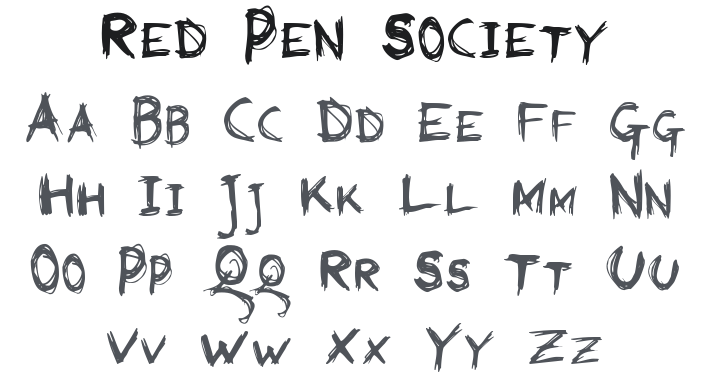 RED PEN SOCIETY
AA BB CC DD EE FF GG
HH II JJ KK LL MM NN
OO PP QQ RR SS TT UU
VV WW XX YY ZZ